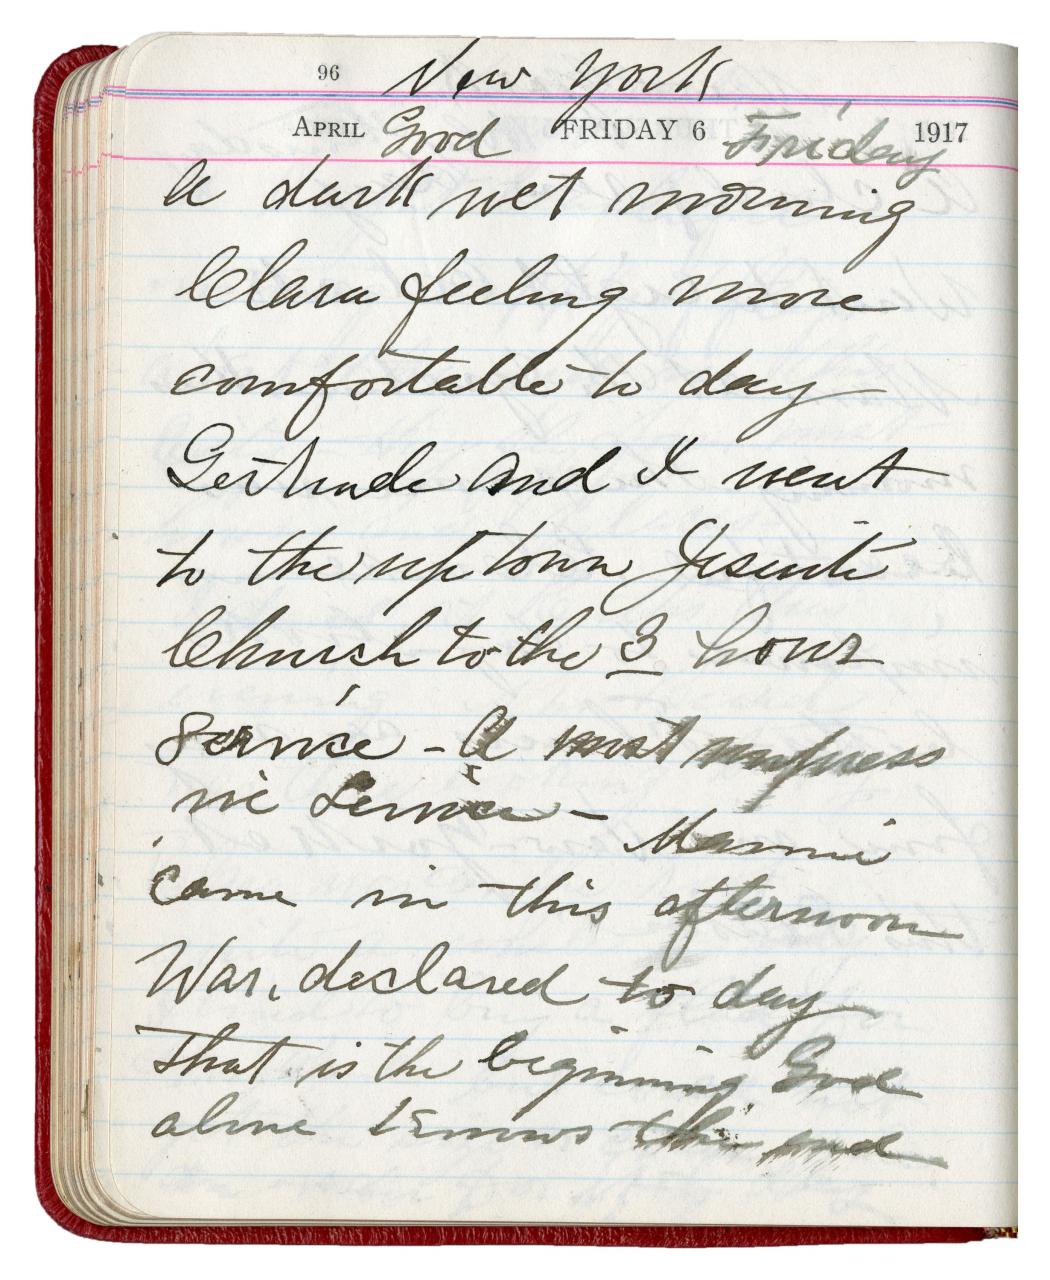 96 New York
APRIL Good FRIDAY 6 Friday 1917
A dark wet morning
Clara feeling more
comfortable to day
Gertrude and I went
to the up town Jesuit
Church to the 3 hour
service - A most impress
ive Service - Mamie
came in this afternoon
War, declared to day
That is the beginning God
alone knows the end